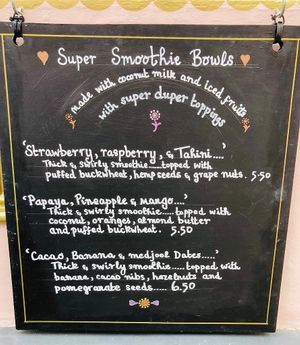 Super Smoothie Bowls
made with coconut milk and iced fruits
with super duper toppings
'Strawberry, raspberry, & Tahini....'
Thick & swirly smoothie.....topped with
puffed buckwheat, hemp seeds & grape nuts. 5.50
'Papaya, Pineapple & mango....'
Thick & swirly smoothie.....topped with
coconut, oranges, almond butter
and puffed buckwheat. 5.50
'Cacao, Banana & medjool Dates.....'
Thick & swirly smoothie.....topped with
banana, cacao nibs, hazelnuts and
pomegranate seeds..... 6.50